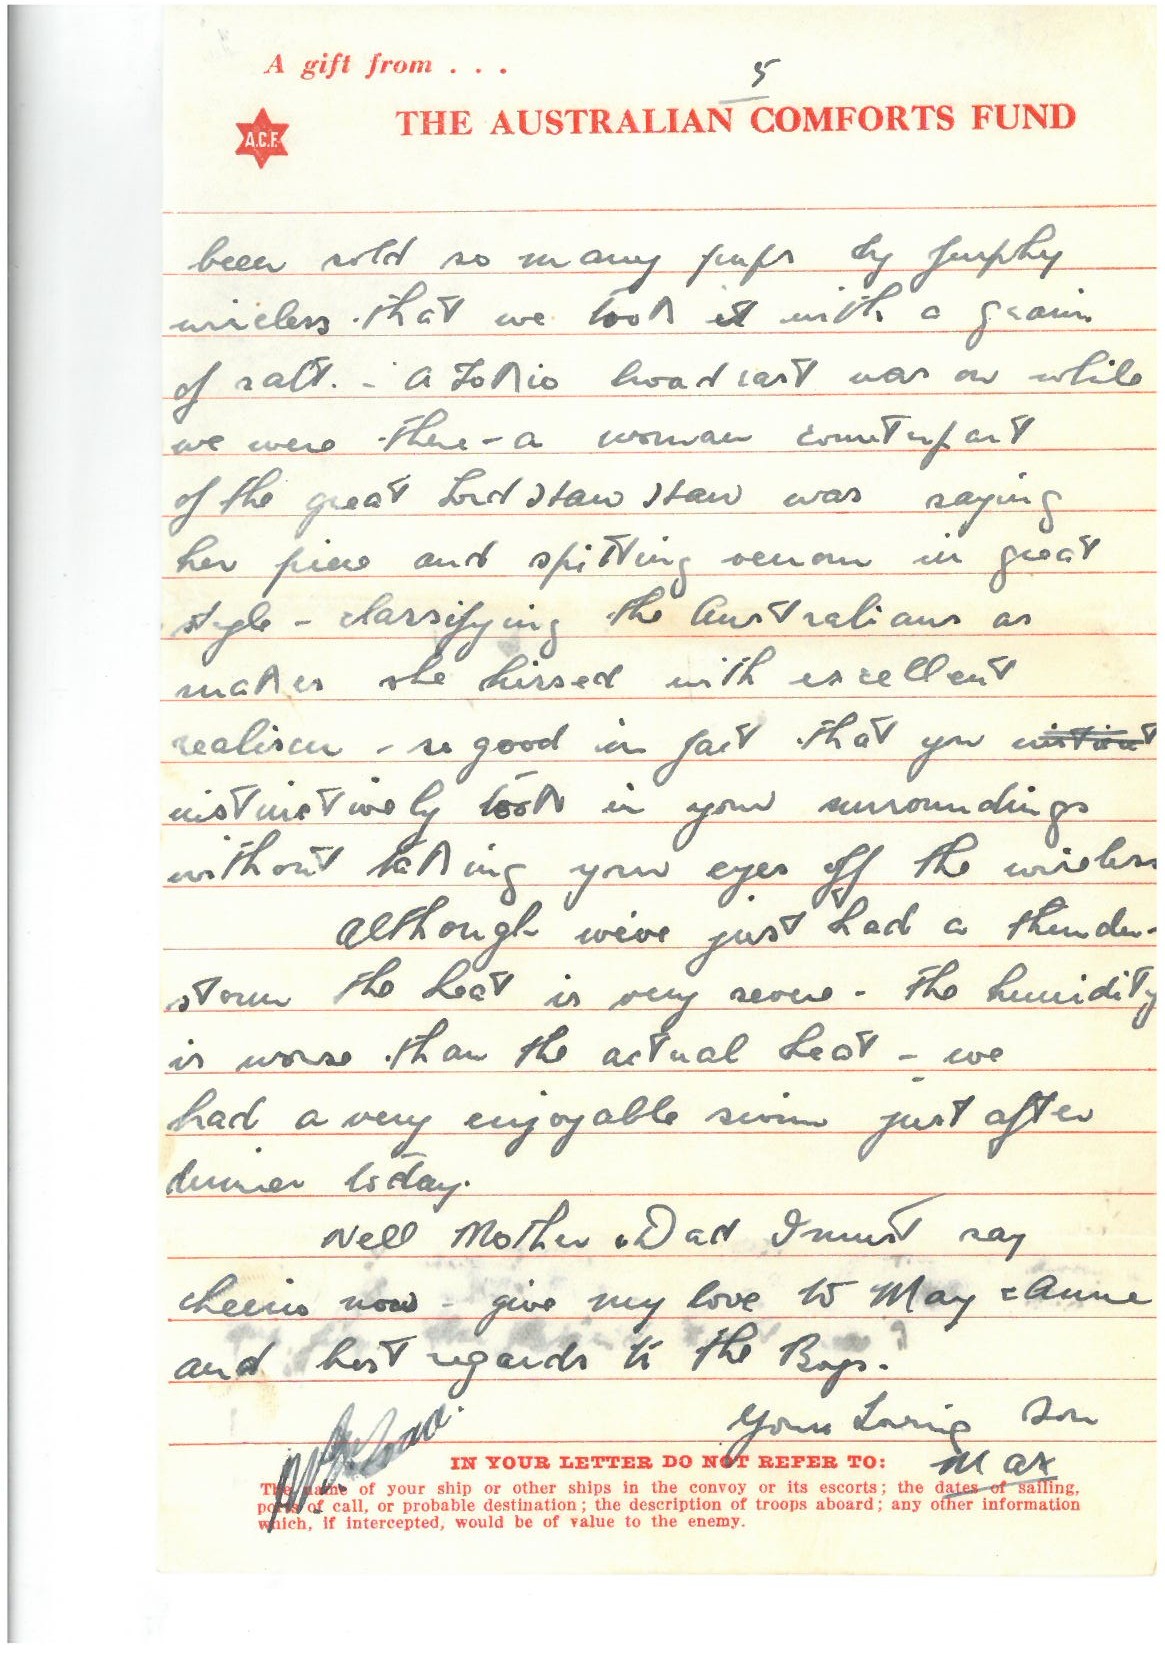 A gift from . . .
5
THE AUSTRALIAN COMFORTS FUND
A.C.F.
been sold so many pups by furphy
wireless that we took it with a grain
of salt. - A Tokio broadcast was on while
we were there - a woman counterpart
of the great Lord Haw Haw was saying
her piece and spitting venom in great
style - classifying the Australians as
snakes she hissed with excellent
realism - so good in fact that you
instinctively took in your surroundings
without taking your eyes off the wireless
Although we've just had a thunder-
storm the heat is very severe - the humidity
is worse than the actual heat - we
had a very enjoyable swim just after
dinner today.
Well Mother & Dad I must say
cheerio now - give my love to May & Anne
and best regards to the Boys.
Your Loving Son
Max
IN YOUR LETTER DO NOT REFER TO:
The name of your ship or other ships in the convoy or its escorts; the dates of sailing,
ports of call, or probable destination; the description of troops aboard; any other information
which, if intercepted, would be of value to the enemy.